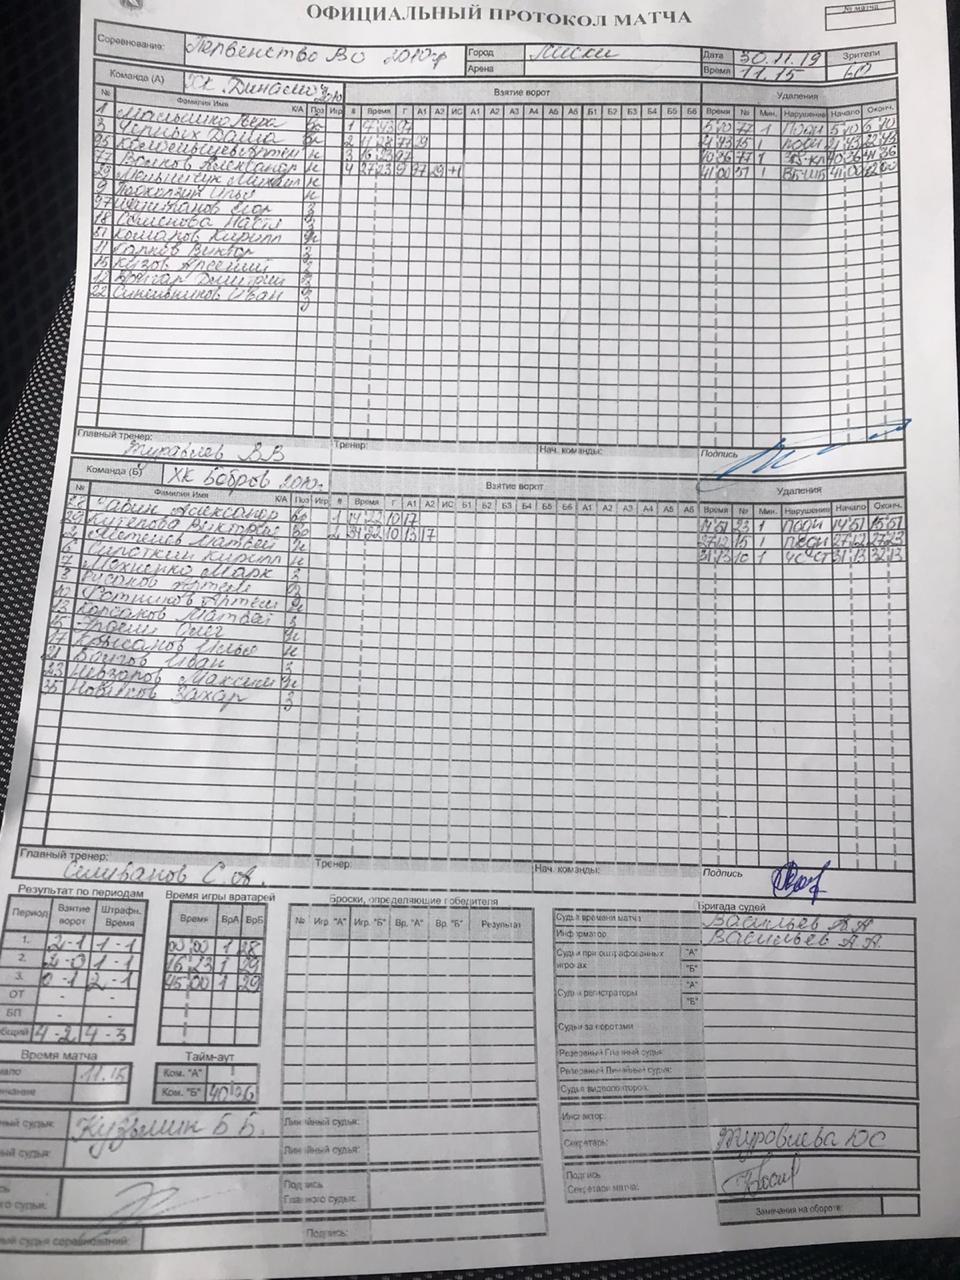 ОФИЦИАЛЬНЫЙ ПРОТОКОЛ МАТЧА
№ матча
Соревнование: Первенство ВО 2010гр Город Лиски Дата 30.11.19 Зрители
Арена Время 11.15 60
Команда (А) ХК Динамо 2010 Взятие ворот Удаления
№ Фамилия Имя К/А Поз Игр # Время Г А1 А2 ИС А1 А2 А3 А4 А5 А6 Б1 Б2 Б3 Б4 Б5 Б6 Время № Мин. Нарушение Начало Оконч.
1 Вр 1 4 43 97 5 40 77 1 5 40 6 40
3 Черных Даша Вр 2 11 28 77 9 21 43 15 1 21 43 22 43
95 н 3 16 23 97 40 36 77 1 40 36 41 36
77 Волков Александр н 4 27 23 9 97 29 +1 41 00 51 1 41 00 42 00
29 Михаил н
9 Подколзин Илья н
97 Егор З
18 Семенова Настя З
51 Команов Кирилл н
11 Виктор З
15 Кузов Арсений З
12 Дмитрий З
22 Синельников Иван З
Главный тренер: Журавлев В В Тренер: Нач. команды: Подпись
Команда (Б) ХК Бобров 2010г. Взятие ворот Удаления
№ Фамилия Имя К/А Поз Игр # Время Г А1 А2 ИС Б1 Б2 Б3 Б4 Б5 Б6 А1 А2 А3 А4 А5 А6 Время № Мин. Нарушение Начало Оконч.
28 Чабин Александр Вр 1 14 22 10 17 14 51 23 1 14 51 15 51
29 Вр 2 31 32 10 13 17 27 12 15 1 27 12 27 23
Матвей н 31 13 10 1 31 13 32 13
6 Сироткин Кирилл н
7 Мохненко Марк З
8 Русанов Артем З
10 Артём н
13 Корсаков Матвей З
15 Олег н
17 Илья н
21 Иван З
23 Невзоров Максим н
35 Новиков Захар З
Главный тренер: Селиванов С.А. Тренер: Нач. команды: Подпись
Результат по периодам Время игры вратарей Броски, определяющие победителя Бригада судей
Период Взятие ворот Штрафн. Время Время ВрА ВрБ № Игр. "А" Игр. "Б" Вр. "А" Вр. "Б" Результат
Судья времени матча Васильев А А
Информатор Васильев А А
1. 2-1 1-1 00 00 1 28
2. 2-0 1-1 16 23 1 29
3. 0-1 2-1 45 00 1 29
ОТ - -
БП - -
Общий 4-2 4-3
Судьи при оштрафованных игроках "А" "Б"
Судьи регистраторы "А" "Б"
Судьи за воротами
Резервный Главный судья:
Резервный Линейный судья:
Судья видеоповторов:
Время матча Тайм-аут
11.15 Ком. "А"
Ком. "Б" 40 36
судья: Кузьмин Б Б. Линейный судья:
судья: Линейный судья:
Инспектор:
Секретарь: Журавлева Ю С
Подпись Главного судьи:
Подпись Секретаря матча:
судья соревнований: Подпись:
Замечания на обороте: